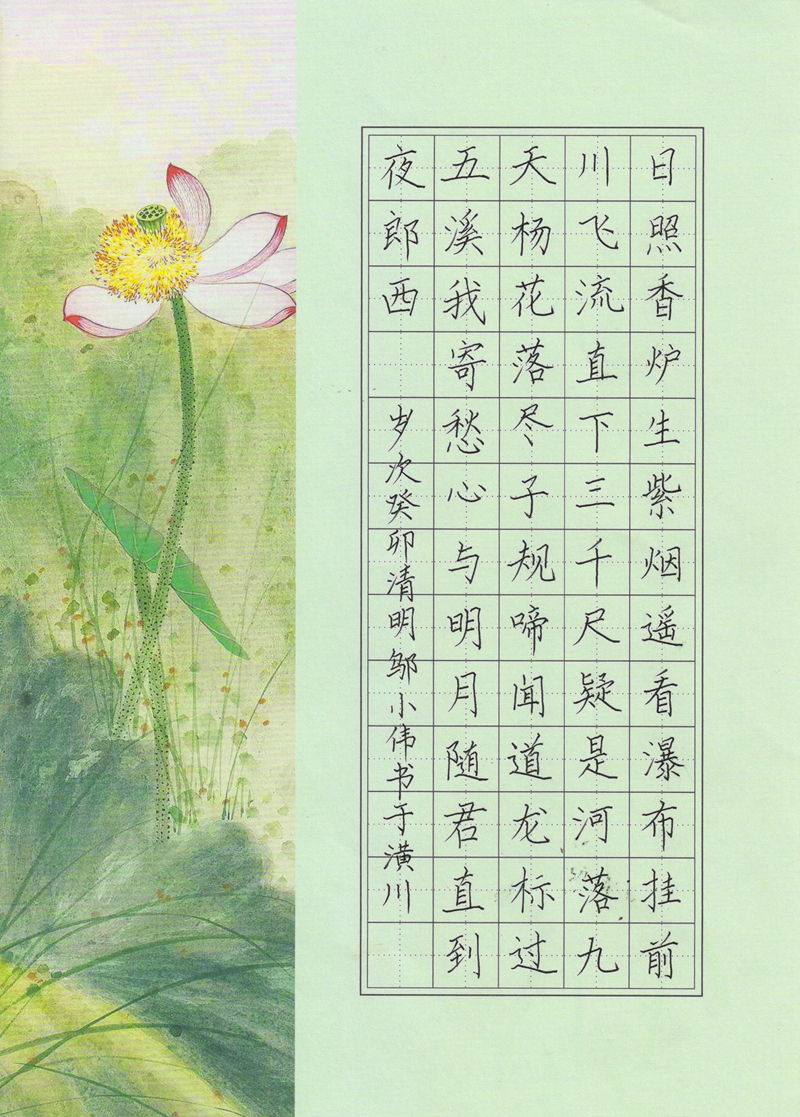 日照香炉生紫烟遥看瀑布挂前
川飞流直下三千尺疑是河落九
天杨花落尽子规啼闻道龙标过
五溪我寄愁心与明月随君直到
夜郎西 岁次癸卯清明邹小伟书于潢川